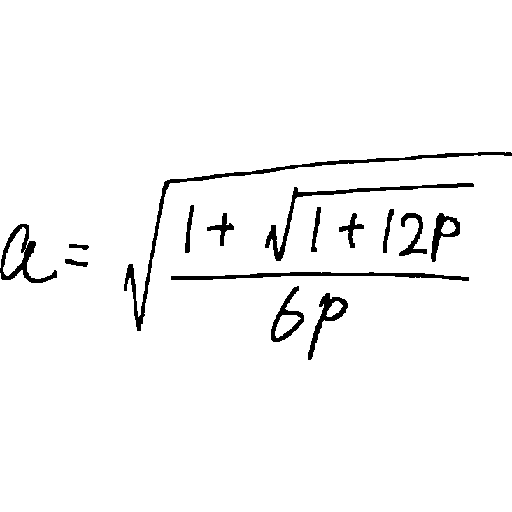 a = \sqrt{\frac{1+\sqrt{1+12p}}{6p}}